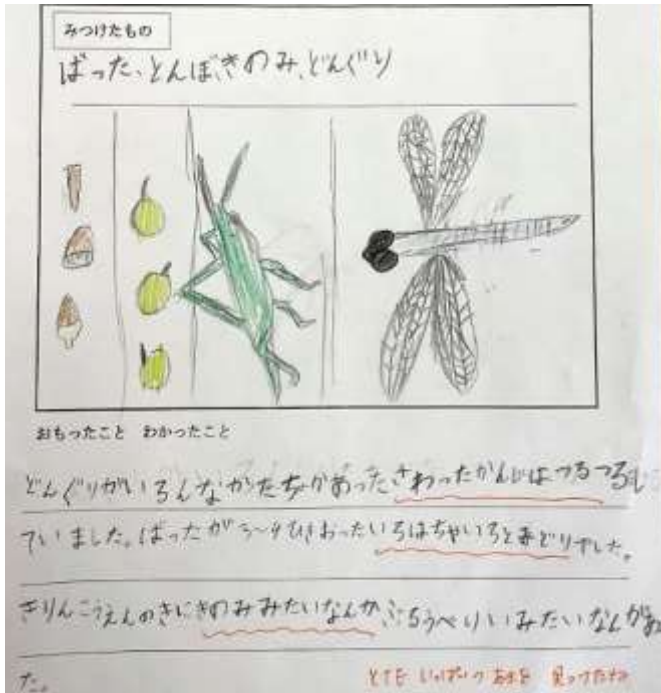 みつけたもの
ばった、とんぼ、きのみ、どんぐり
おもったこと わかったこと
どんぐりがいろんなかたちがあったさわったかんじはつるつるし
ていました。ばったが3〜4ひきおったいろはちゃいろとみどりでした。
きりんこうえんのきにきのみみたいなんか ぶるうべりいみたいなんがあ
た。
いっぱい 見つけたね